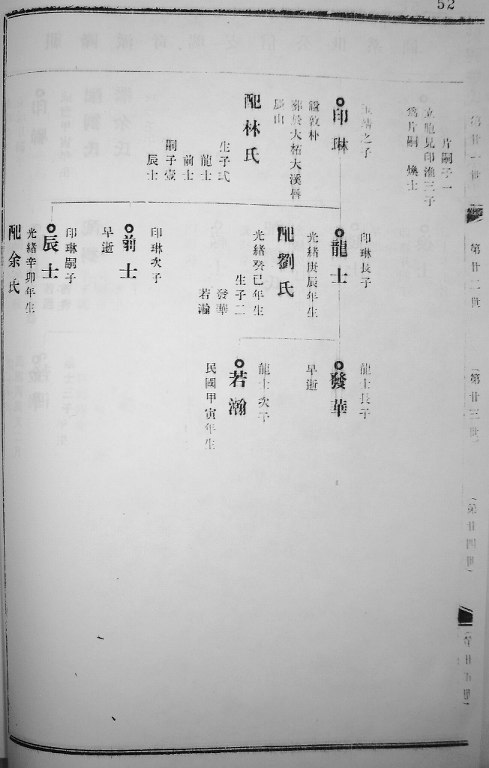 52
片嗣子一
立胞兄印淮三子
爲片嗣 煥士
之子
印琳
諡敦朴
葬於大柘大溪唇
辰山
配林氏
生子弍
龍士
前士
嗣子壹
辰士
印琳長子
龍士
光緒庚辰年生
配劉氏
光緒癸巳年生
生子二
發華
若瀚
印琳次子
前士
早逝
印琳嗣子
辰士
光緒辛卯年生
配余氏
龍士長子
發華
早逝
龍士次子
若瀚
民國甲寅年生
第廿一世
第廿二世
第廿三世